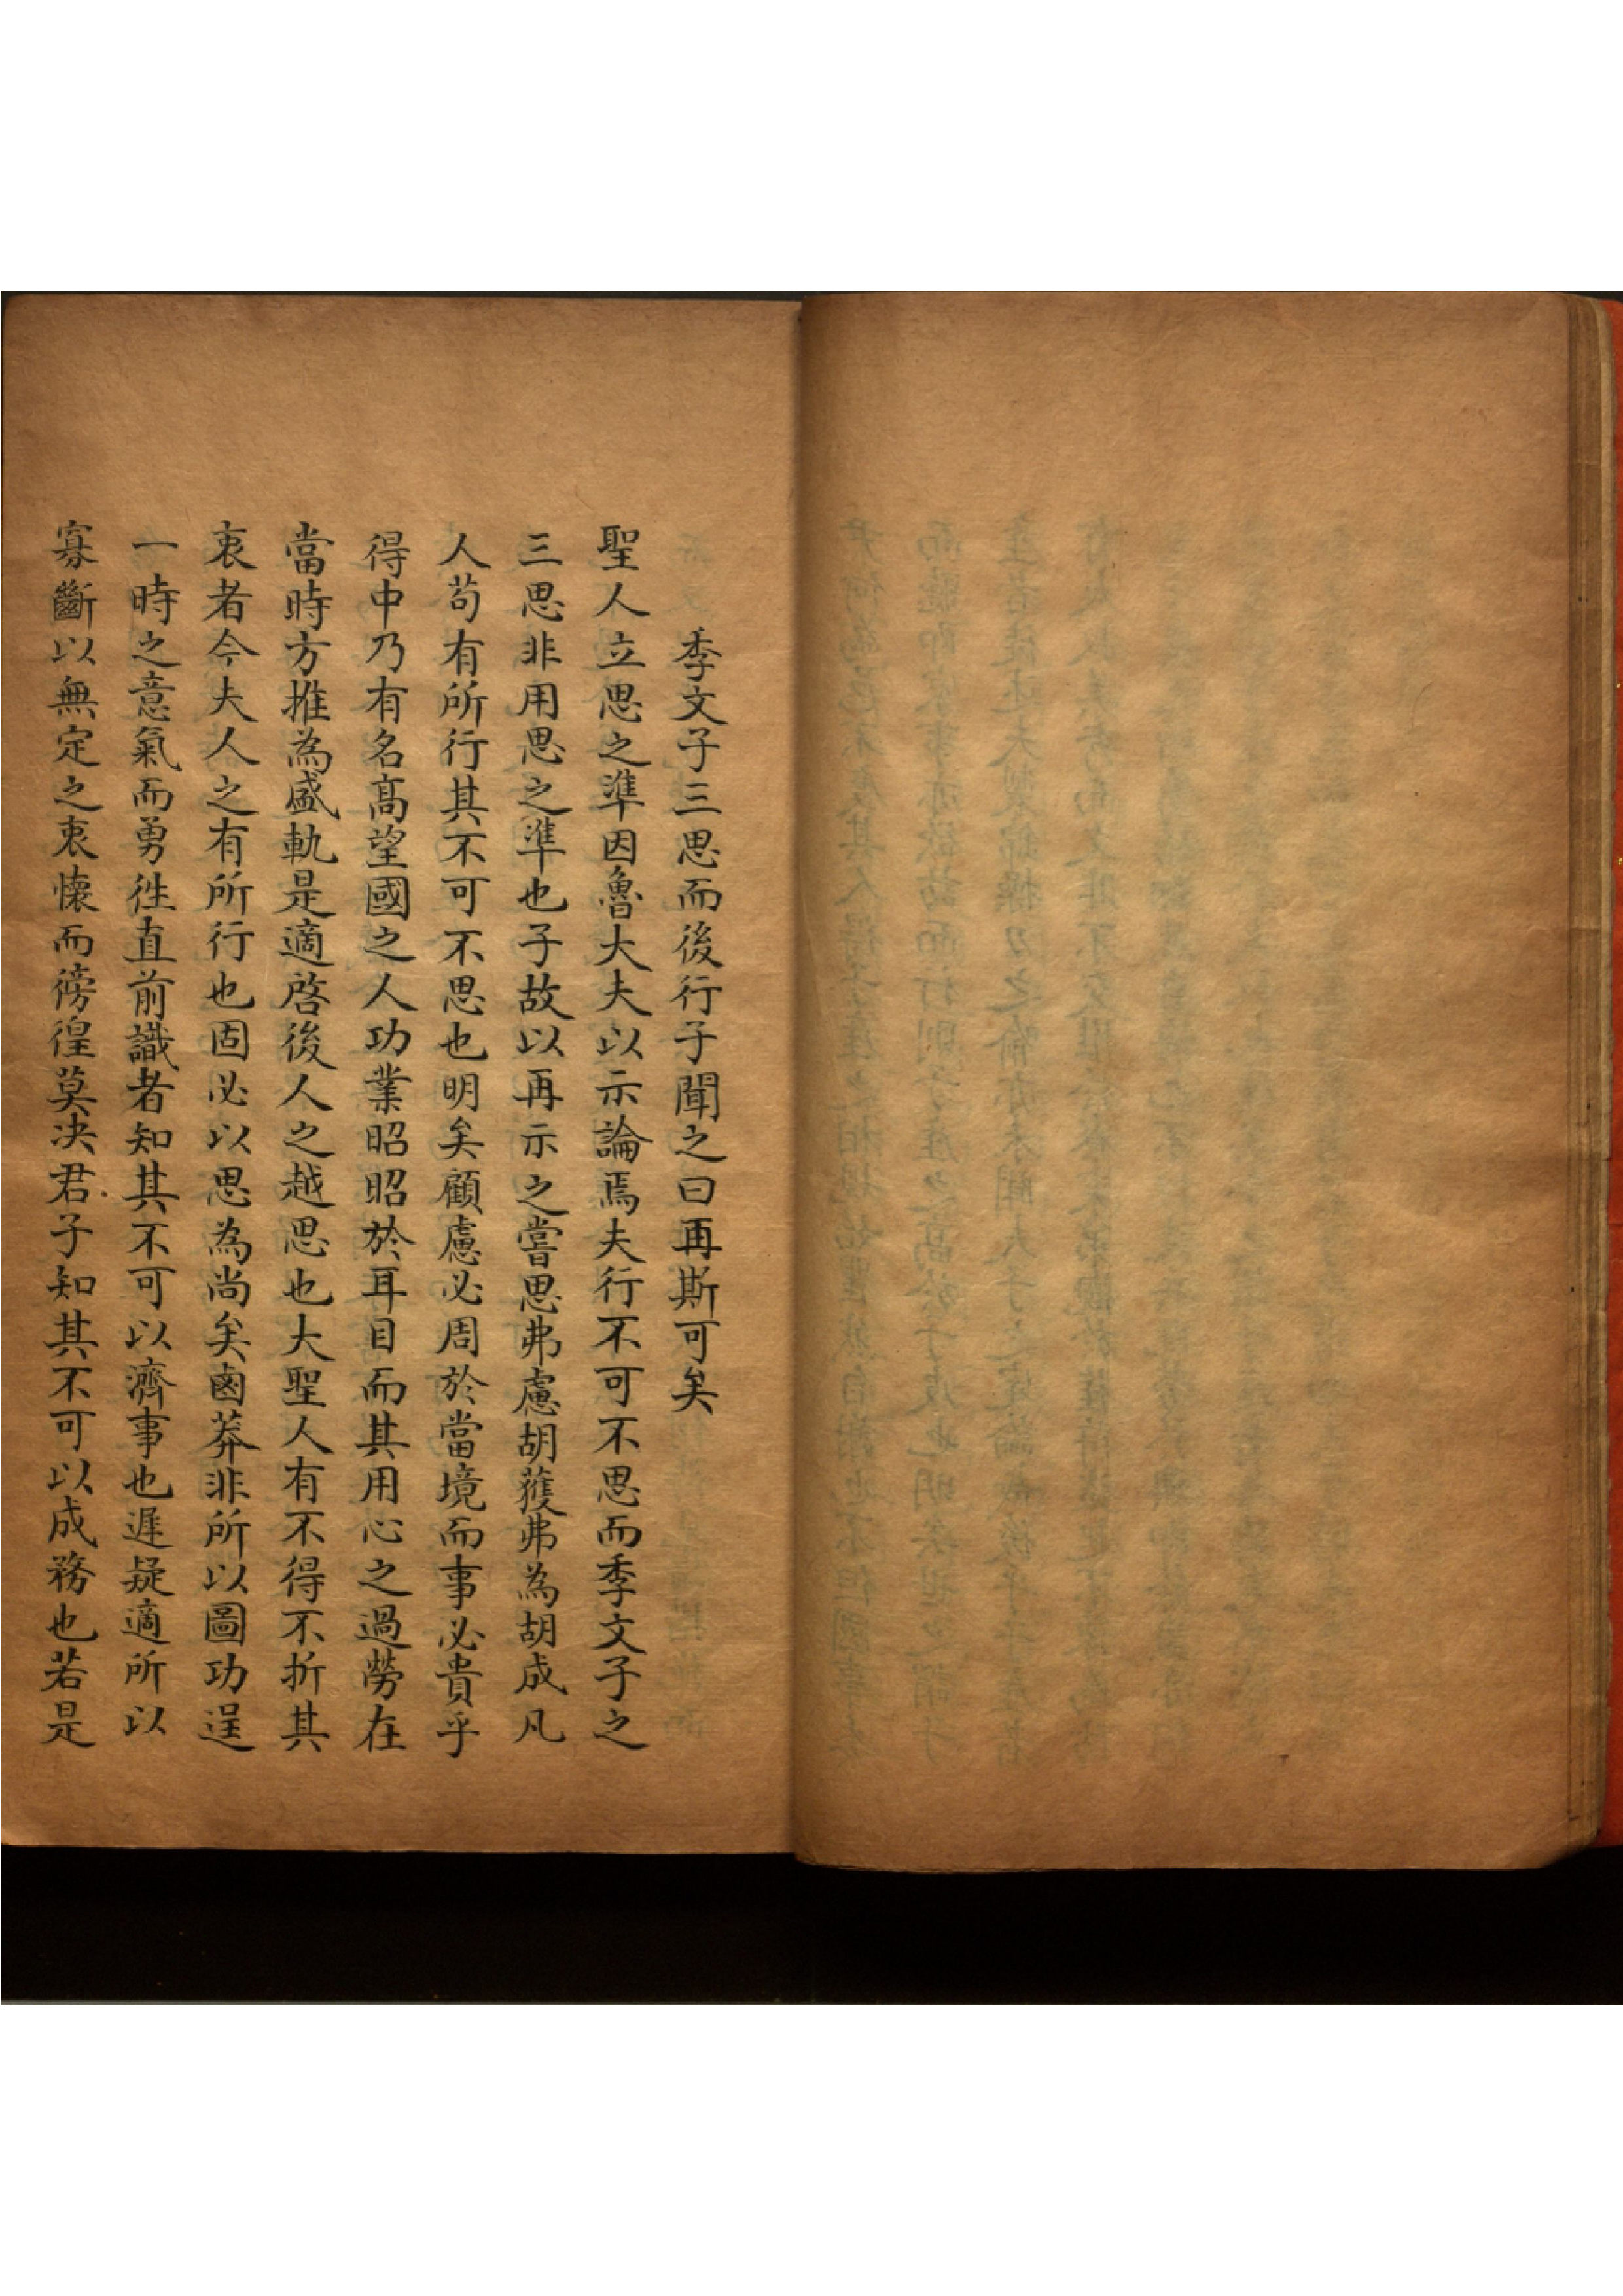 季文子三思而後行子聞之曰再斯可矣
聖人立思之準因魯大夫以示論焉夫行不可不思而季文子之
三思非用思之準也子故以再示之嘗思弗慮胡獲弗為胡成凡
人苟有所行其不可不思也明矣顧慮必周於當境而事必貴乎
得中乃有名髙望國之人功業昭昭於耳目而其用心之過勞在
當時方推為盛軌是適啓後人之越思也大聖人有不得不折其
衷者今夫人之有所行也固必以思為尚矣鹵莽非所以圖功逞
一時之意氣而勇徃直前識者知其不可以濟事也遲疑適所以
寡斷以無定之衷懷而徬徨莫决君子知其不可以成務也若是